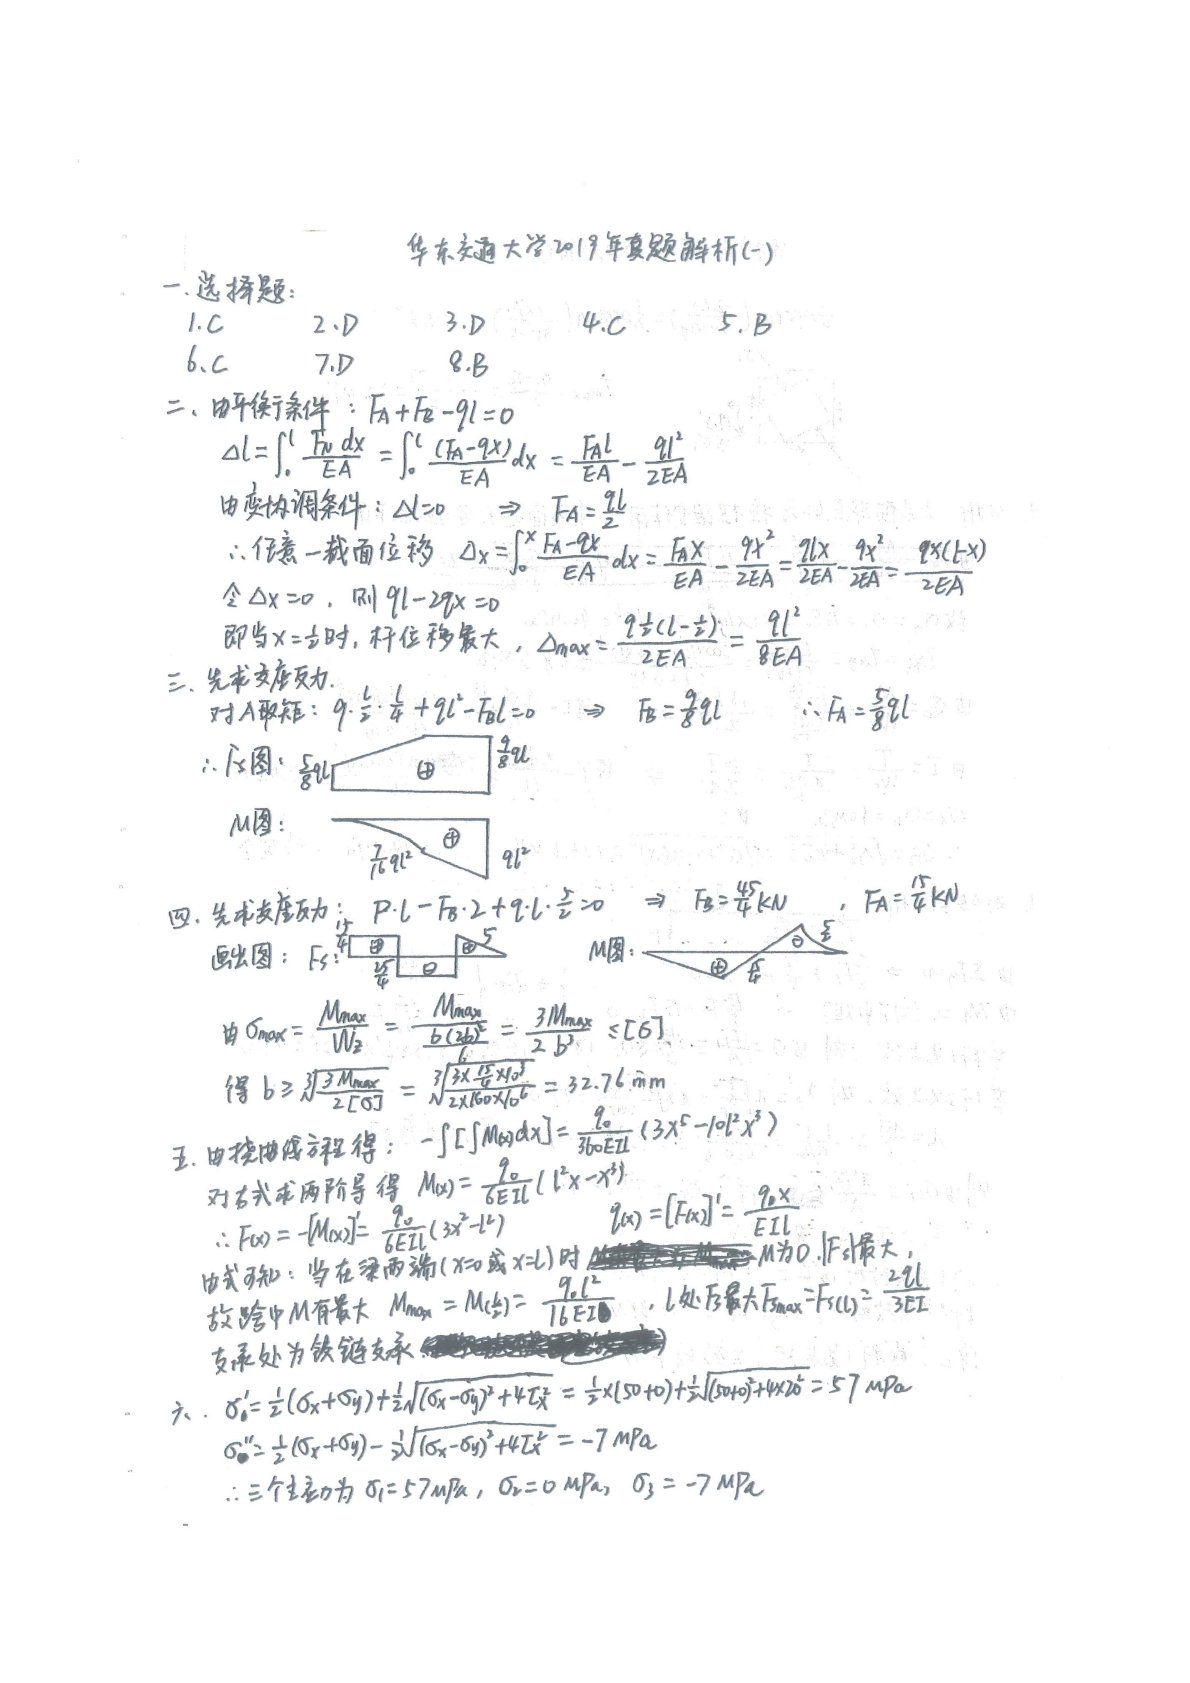 华东交通大学2019年真题解析(一)
一.选择题:
1.C 2.D 3.D 4.C 5.B
6.C 7.D 8.B
二、由平衡条件:F_A+F_B-ql=0
Δl=∫_0^l F_N dx/EA = ∫_0^l (F_A-qx)/EA dx = F_A l/EA - ql²/2EA
由变协调条件:Δl=0 ⇒ F_A=ql/2
∴任意一截面位移 Δx=∫_0^x (F_A-qx)/EA dx = F_A x/EA - qx²/2EA = qlx/2EA - qx²/2EA = qx(l-x)/2EA
令Δx=0,则 ql-2qx=0
即当x=l/2时,杆位移最大,Δmax= q l/2 (l-l/2)/2EA = ql²/8EA
三、先求支座反力.
对A取矩:q·l/2·l/4+ql²-F_B l=0 ⇒ F_B=9/8 ql ∴F_A=5/8 ql
∴Fs图: 5/8 ql ⊕ 9/8 ql
M图: 7/16 ql² ⊕ ql²
四.先求支座反力:P·l-F_B·2+q·l·5/2=0 ⇒ F_B=45/4 KN , F_A=15/4 KN
画出图:Fs: 15/4 ⊕ 25/4 ⊖ ⊕ 5 M图: ⊕ 15/4 ⊖ 5/2
由σmax= Mmax/Wz = Mmax/(b(2b)²/6) = 3Mmax/2b³ ≤[σ]
得 b≥∛(3Mmax/2[σ]) = ∛(3×15/4×10³/2×160×10⁶) = 32.76mm
五.由挠曲线方程得:-∫[∫M(x)dx]= q₀/360EIl (3x⁵-10l²x³)
对右式求两阶导得 M(x)= q₀/6EIl (l²x-x³)
∴F(x)=-[M(x)]'= q₀/6EIl (3x²-l²) q(x)=[F(x)]'= q₀x/EIl
由式可知:当在梁两端(x=0或x=l)时 M为0.|Fs|最大,
故跨中M有最大 Mmax=M(l/2)= q₀l²/16EI , l处Fs最大Fsmax=Fs(l)= 2ql/3EI
支承处为铰链支承
六. σ'=1/2(σx+σy)+1/2√((σx-σy)²+4τx²) = 1/2×(50+0)+1/2√((50+0)²+4×20²) = 57MPa
σ''=1/2(σx+σy)-1/2√((σx-σy)²+4τx²) = -7MPa
∴三个主应力为 σ₁=57MPa, σ₂=0MPa, σ₃=-7MPa